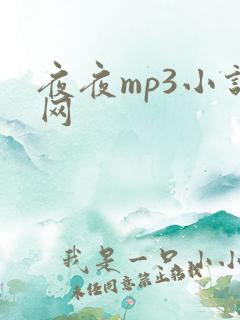 夜夜mp3小説
网
我是一只小小
未经同意禁止搭载